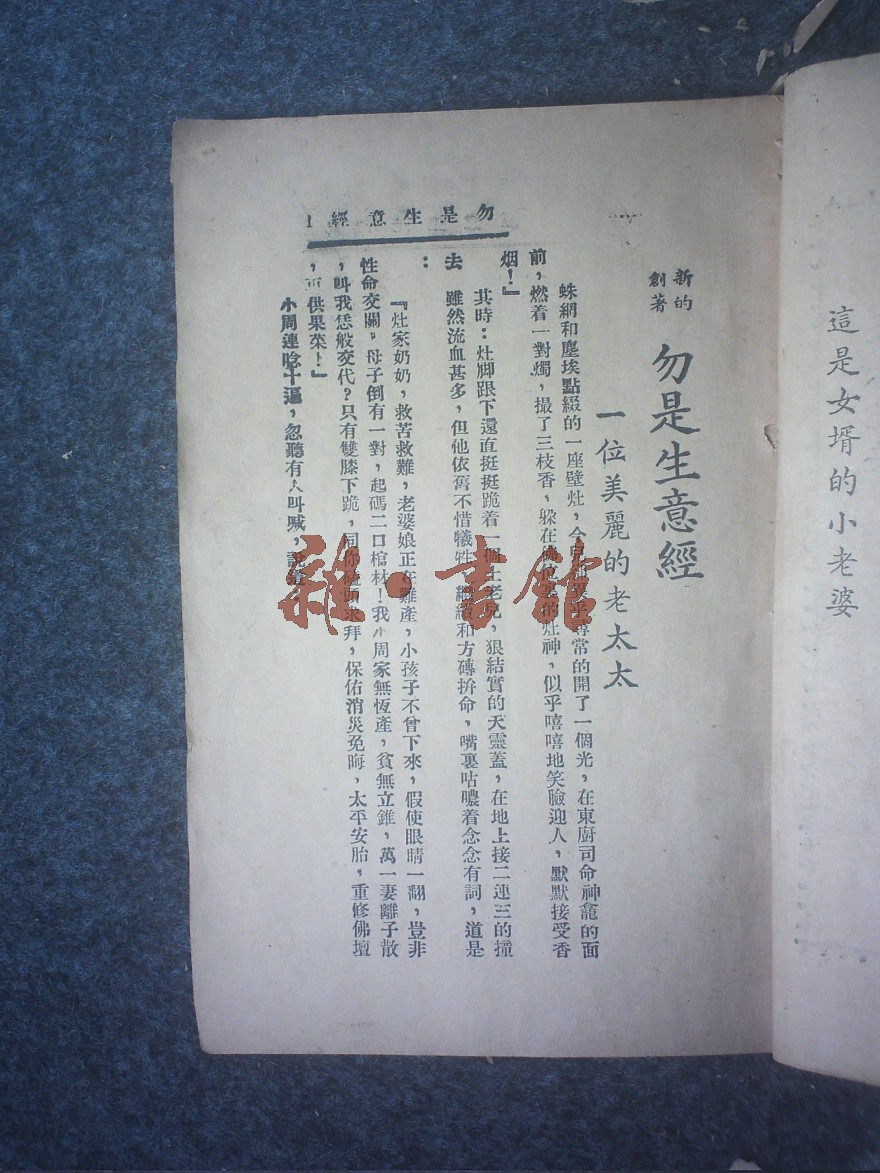 這是女壻的小老婆
新的
創著
勿是生意經
一位美麗的老太太
勿是生意經 1
蛛網和塵埃點綴的一座壁灶，今日尋常的開了一個光，在東廚司命神龕的面
前，燃着一對燭，撮了三枝香，躱在的灶神，似乎嘻嘻地笑臉迎人，默默接受香
烟！』
其時：灶脚跟下還直挺挺跪着一個土老兒，狠結實的天靈蓋，在地上接二連三的撞
去
雖然流血甚多，但他依舊不惜犧牲，繼續和方磚拚命，嘴裏咕噥着念念有詞，道是
：
『灶家奶奶，救苦救難，老婆娘正在難產，小孩子不曾下來，假使眼睛一翻，豈非
性命交關，母子倒有一對，起碼二口棺材！我小周家無恆產，貧無立錐，萬一妻離子散
，叫我恁般交代？只有雙膝下跪，同你磕頭求拜，保佑消災免晦，太平安胎，重修佛壇
，供果菜！』
小周連唸十遍，忽聽有人叫喊，
雜·書館